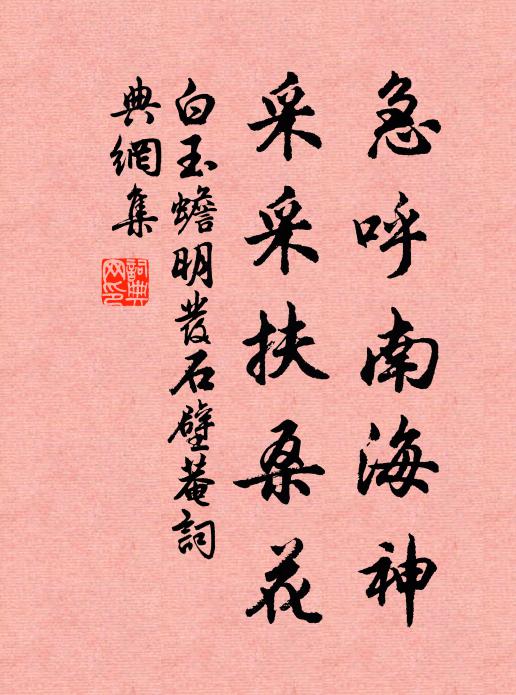 急呼南海神
采采扶桑花
白玉蟾明發石壁菴詞
典網集
詞典
网印